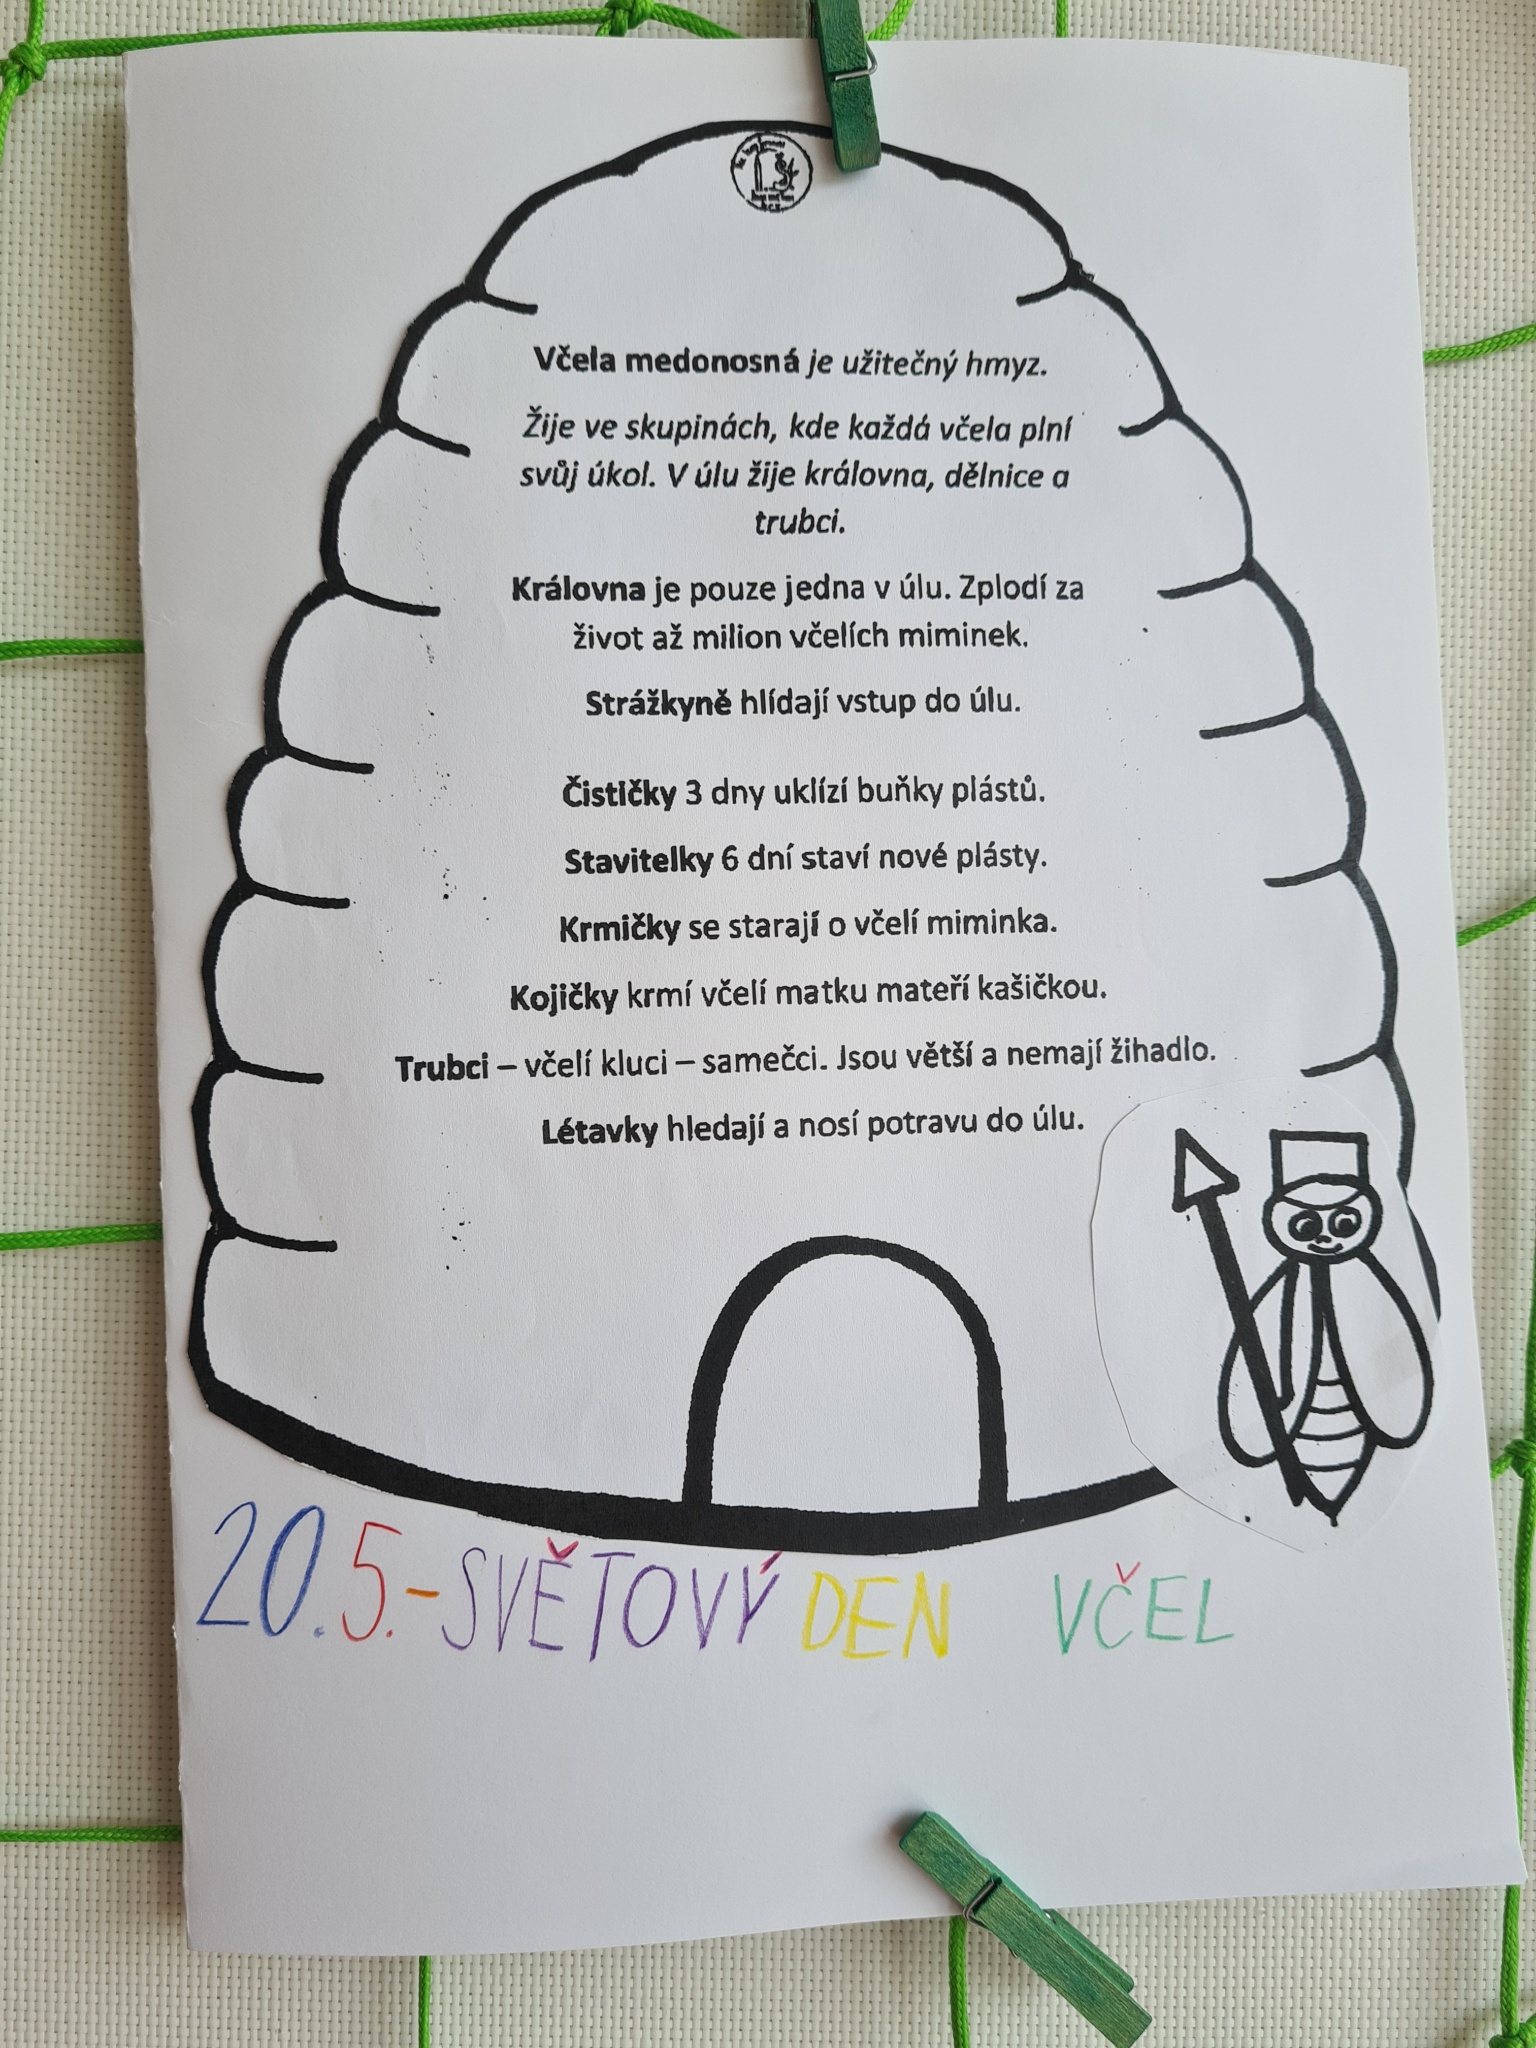 Včela medonosná je užitečný hmyz.
Žije ve skupinách, kde každá včela plní
svůj úkol. V úlu žije královna, dělnice a
trubci.
Královna je pouze jedna v úlu. Zplodí za
život až milion včelích miminek.
Strážkyně hlídají vstup do úlu.
Čističky 3 dny uklízí buňky plástů.
Stavitelky 6 dní staví nové plásty.
Krmičky se starají o včelí miminka.
Kojičky krmí včelí matku mateří kašičkou.
Trubci – včelí kluci – samečci. Jsou větší a nemají žihadlo.
Létavky hledají a nosí potravu do úlu.
20.5.-SVĚTOVÝ DEN VČEL